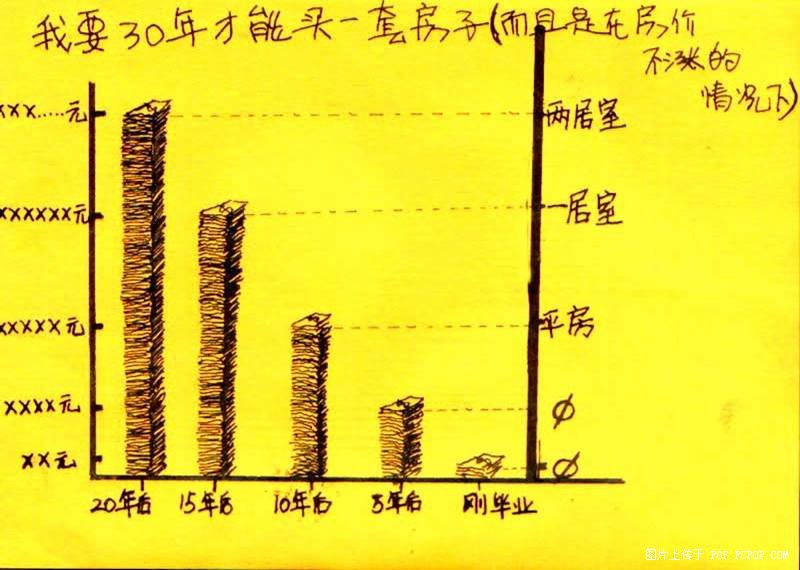 我要30年才能买一套房子(而且是在房价
不涨的
情况下)
xxx.....元
两居室
xxxxxx元
一居室
xxxxx元
平房
xxxx元
ø
xx元
ø
20年后 15年后 10年后 5年后 刚毕业
图片上传于 POP.PCPOP.COM